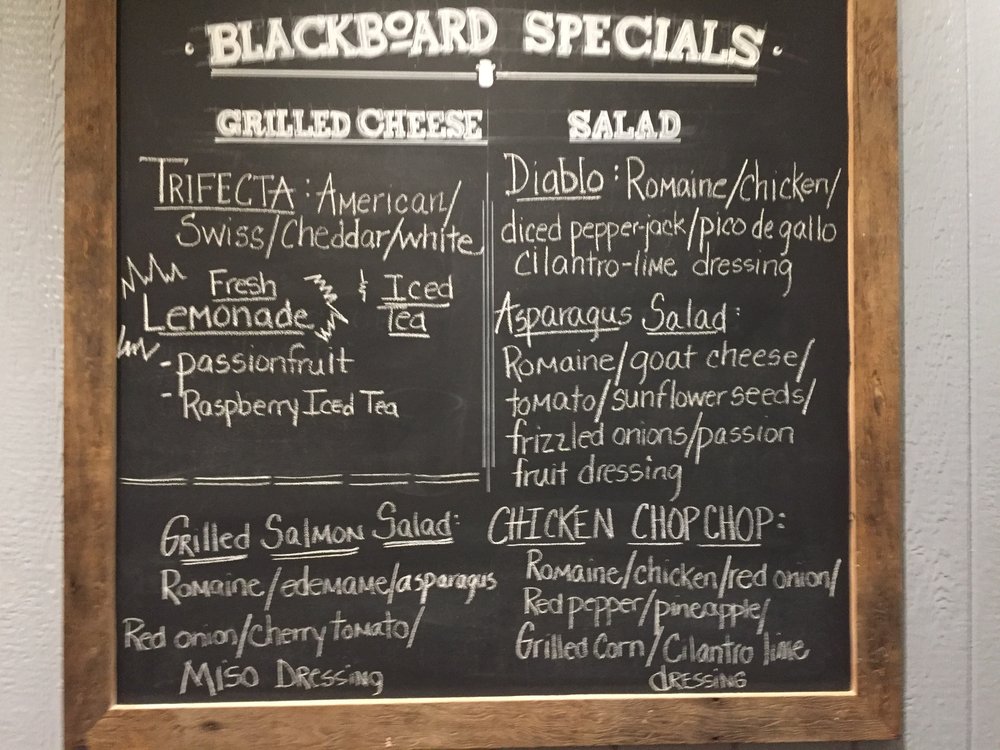 BLACKBOARD SPECIALS
GRILLED CHEESE
TRIFECTA: American/
Swiss/Cheddar/white
Fresh
Lemonade
& Iced
Tea
- passionfruit
- Raspberry Iced Tea
SALAD
Diablo: Romaine/chicken/
diced pepper-jack/pico de gallo
cilantro-lime dressing
Asparagus Salad:
Romaine/goat cheese/
tomato/sunflower seeds/
frizzled onions/passion
fruit dressing
Grilled Salmon Salad:
Romaine/edemame/asparagus
Red onion/cherry tomato/
Miso Dressing
CHICKEN CHOPCHOP:
Romaine/chicken/red onion/
Red pepper/pineapple/
Grilled Corn/Cilantro lime
dressing